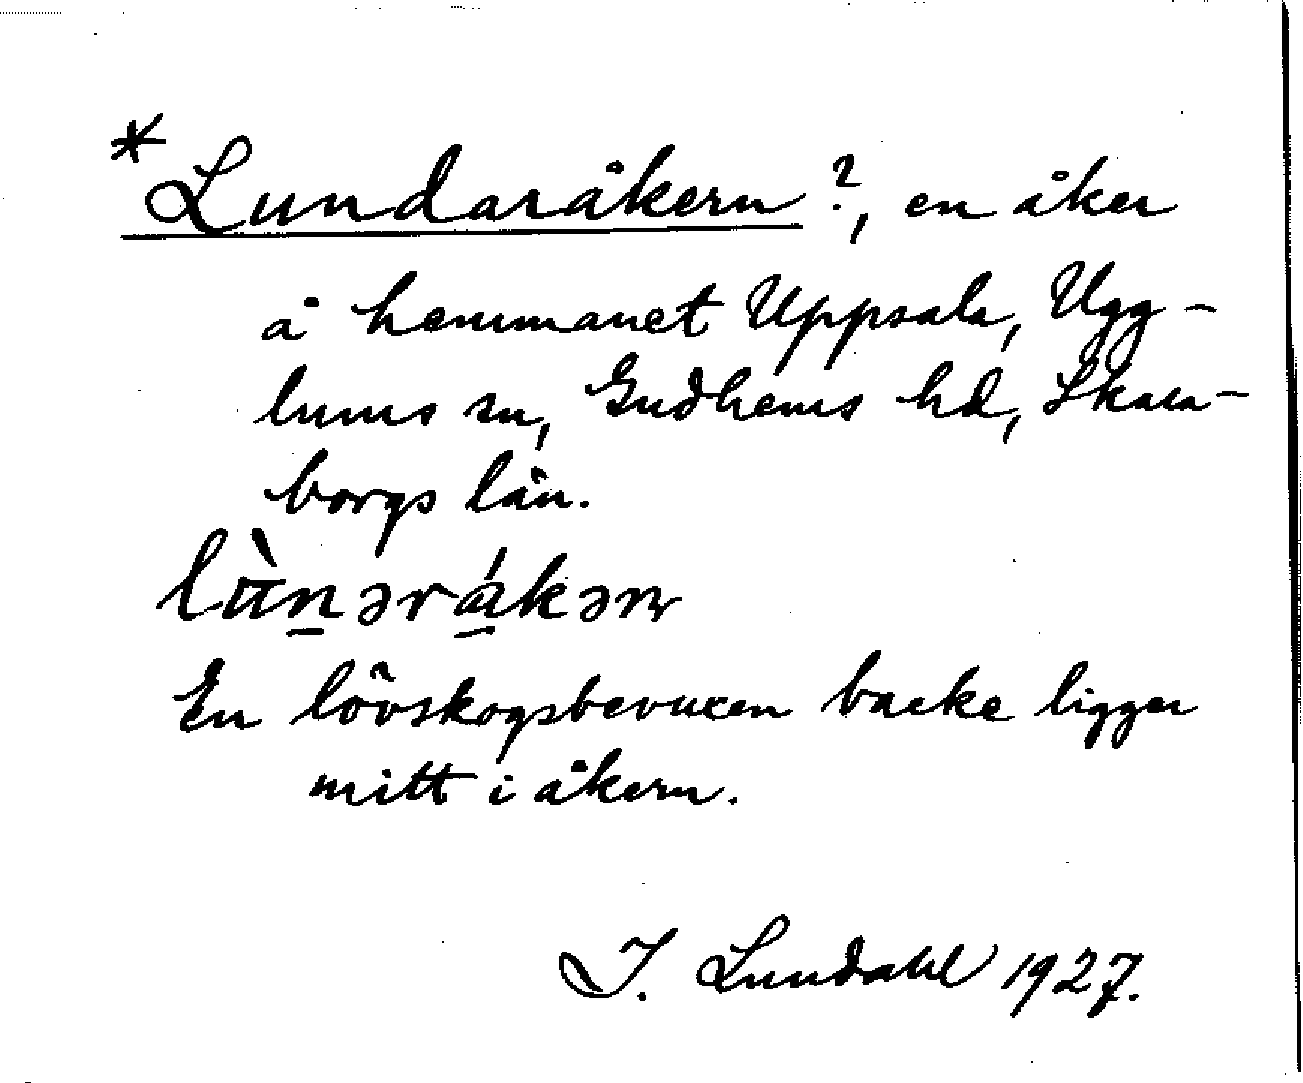 *Lundaråkern ?, en åker
å hemmanet Uppsala, Ugg-
lums sn, Gudhems hd, Skara-
borgs län.
En lövskogsbevuxen backe ligger
mitt i åkern.
I. Lundahl 1927.